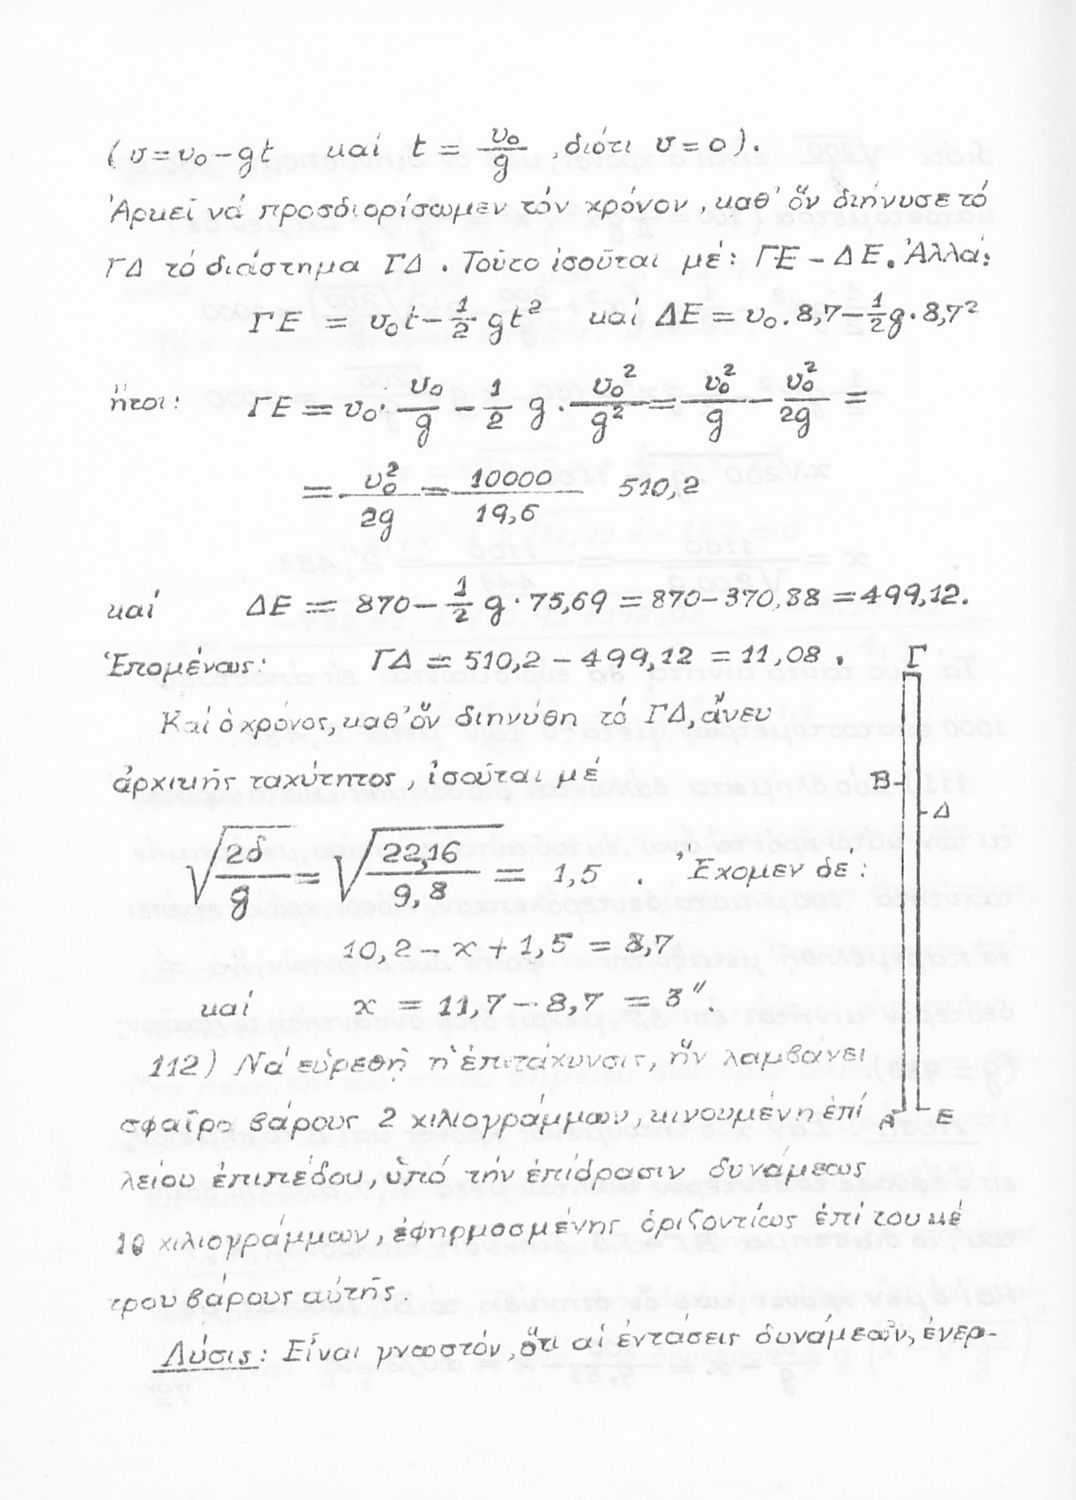 ( υ=υ₀-gt καί t = υ₀/g , διότι υ=0).
Ἀρκεῖ νά προσδιορίσωμεν τόν χρόνον, καθ' ὅν διήνυσε τό
ΓΔ τό διάστημα ΓΔ. Τοῦτο ἰσοῦται μέ: ΓΕ-ΔΕ. Ἀλλά:
ΓΕ = υ₀t-1/2 gt² καί ΔΕ = υ₀.8,7-1/2g.8,7²
ἤτοι: ΓΕ = υ₀.υ₀/g - 1/2 g.υ₀²/g² = υ₀²/g - υ₀²/2g =
= υ₀²/2g = 10000/19,6 510,2
καί ΔΕ = 870-1/2 g.75,69 = 870-370,88 = 499,12.
Ἑπομένως: ΓΔ = 510,2-499,12 = 11,08.
Γ
Καί ὁ χρόνος, καθ' ὅν διηνύθη τό ΓΔ, ἄνευ
ἀρχικῆς ταχύτητος, ἰσοῦται μέ
Β
Δ
√2δ/g = √22,16/9,8 = 1,5 . Ἔχομεν δέ:
10,2-x+1,5 = 8,7
καί x = 11,7-8,7 = 3″.
112) Νά εὑρεθῇ ἡ ἐπιτάχυνσις, ἥν λαμβάνει
σφαῖρα βάρους 2 χιλιογράμμων, κινουμένη ἐπί
Α Ε
λείου ἐπιπέδου, ὑπό τήν ἐπίδρασιν δυνάμεως
10 χιλιογράμμων, ἐφηρμοσμένης ὁριζοντίως ἐπί του κέ
τρου βάρους αὐτῆς.
Λύσις: Εἶναι γνωστόν, ὅτι αἱ ἐντάσεις δυνάμεων, ἐνερ-